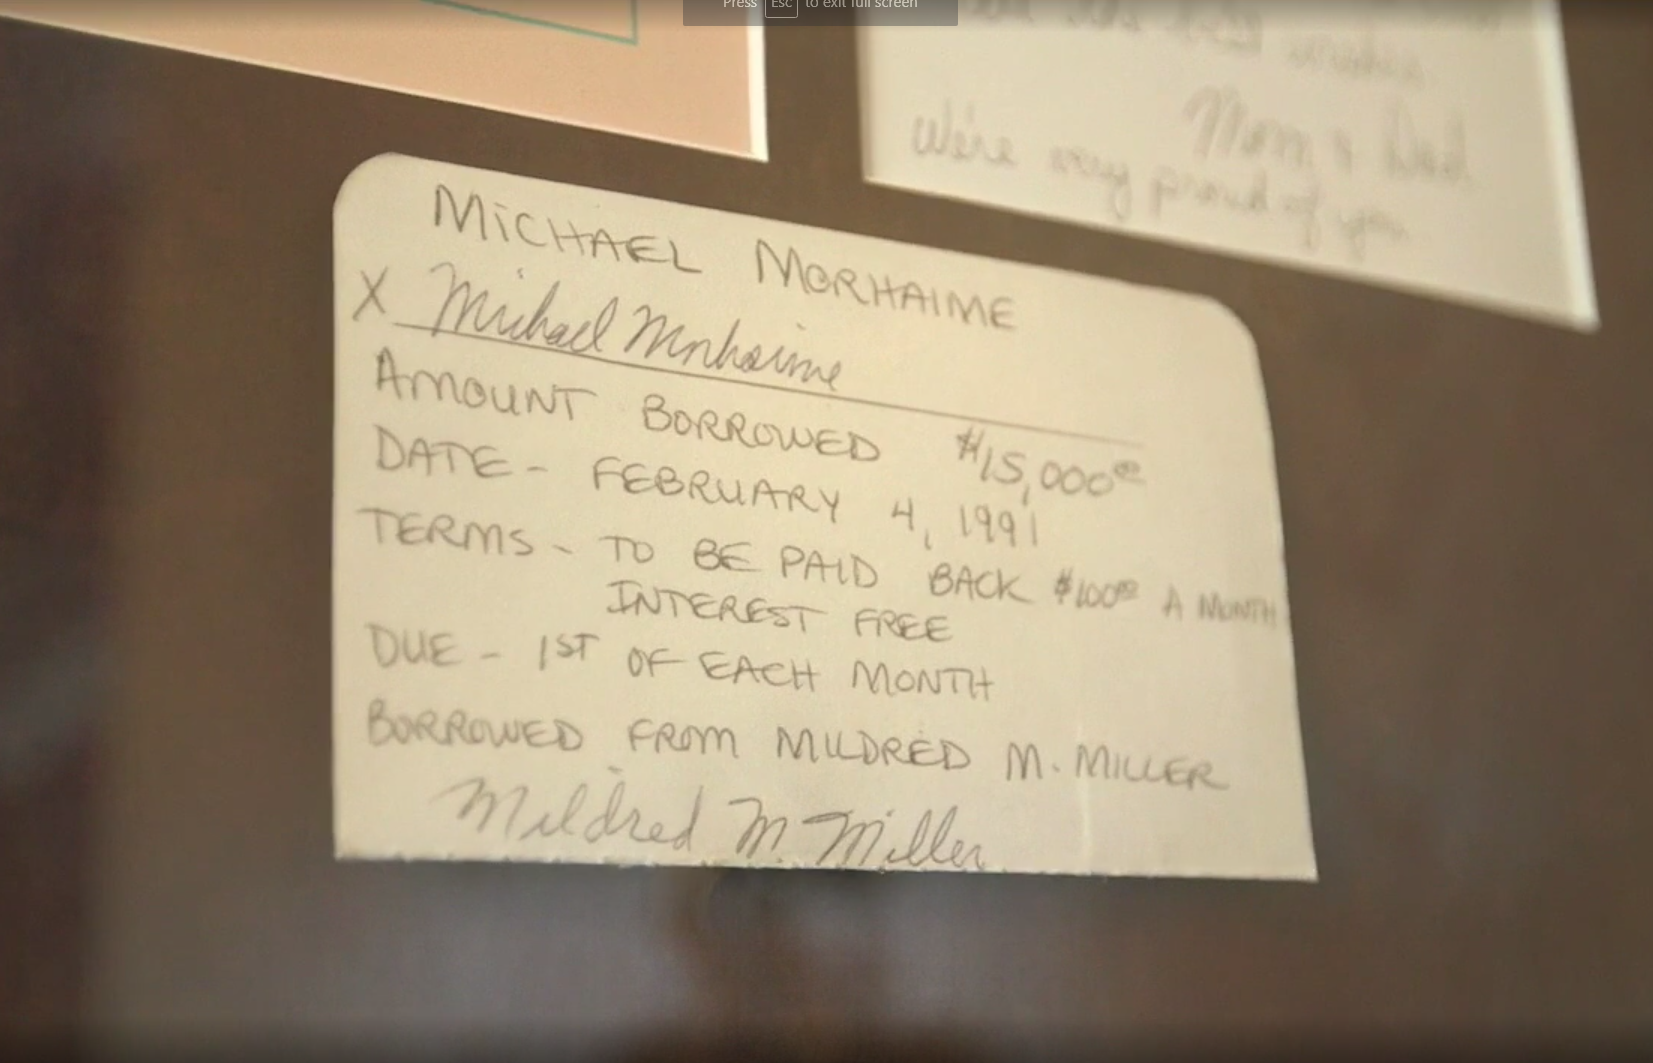 Press Esc to exit full screen
wishes
Mom & Dad
We're very proud of you
MiCHAEL MORHAIME
X Michael Morhaime
AMOUNT BORROWED $15,000⁰⁰
DATE - FEBRUARY 4, 1991
TERMS - TO BE PAID BACK $100⁰⁰ A MONTH
INTEREST FREE
DUE - 1ST OF EACH MONTH
BORROWED FROM MILDRED M. MILLER
Mildred M. Miller